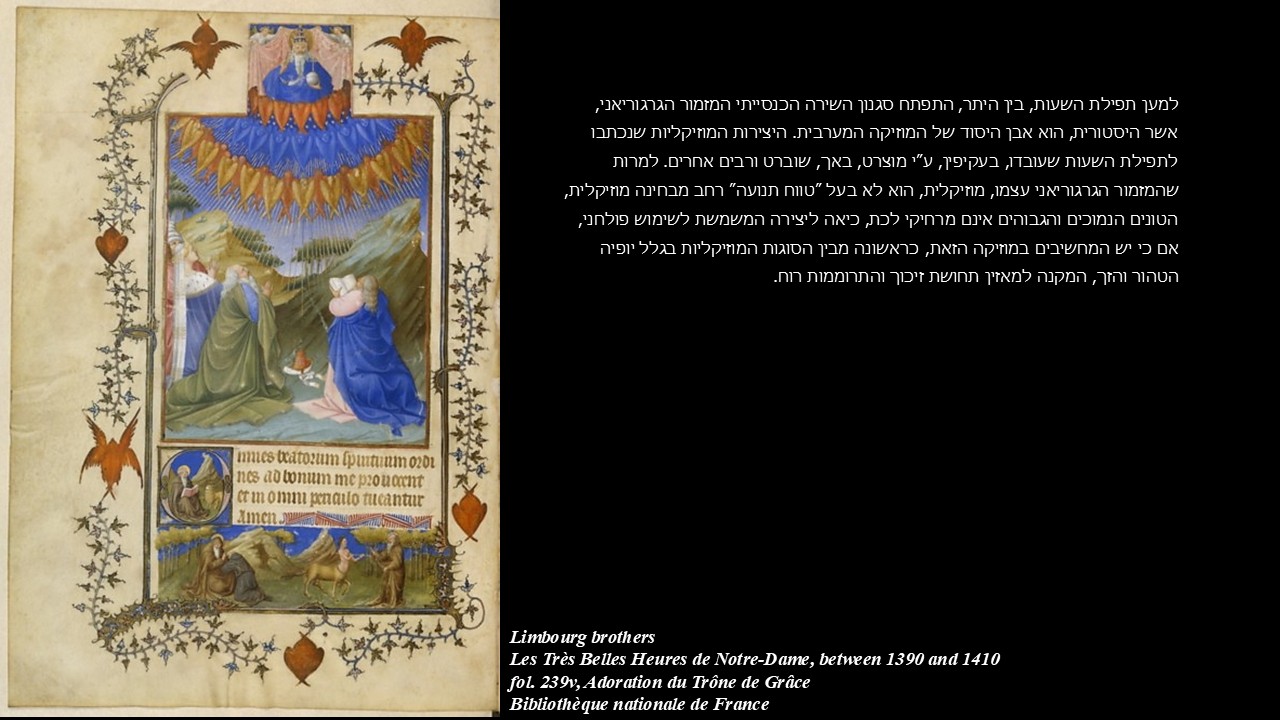 למען תפילת השעות, בין היתר, התפתח סגנון השירה הכנסייתי המזמור הגרגוריאני,
אשר היסטורית, הוא אבן היסוד של המוזיקה המערבית. היצירות המוזיקליות שנכתבו
לתפילת השעות שעובדו, בעקיפין, ע"י מוצרט, באך, שוברט ורבים אחרים. למרות
שהמזמור הגרגוריאני עצמו, מוזיקלית, הוא לא בעל "טווח תנועה" רחב מבחינה מוזיקלית,
הטונים הנמוכים והגבוהים אינם מרחיקי לכת, כיאה ליצירה המשמשת לשימוש פולחני,
אם כי יש המחשיבים במוזיקה הזאת, כראשונה מבין הסוגות המוזיקליות בגלל יופיה
הטהור והזך, המקנה למאזין תחושת זיכוך והתרוממות רוח.
omnes beatorum spirituum ordi
nes ad bonum me provocent
et in omni periculo tueantur
Amen
Limbourg brothers
Les Très Belles Heures de Notre-Dame, between 1390 and 1410
fol. 239v, Adoration du Trône de Grâce
Bibliothèque nationale de France